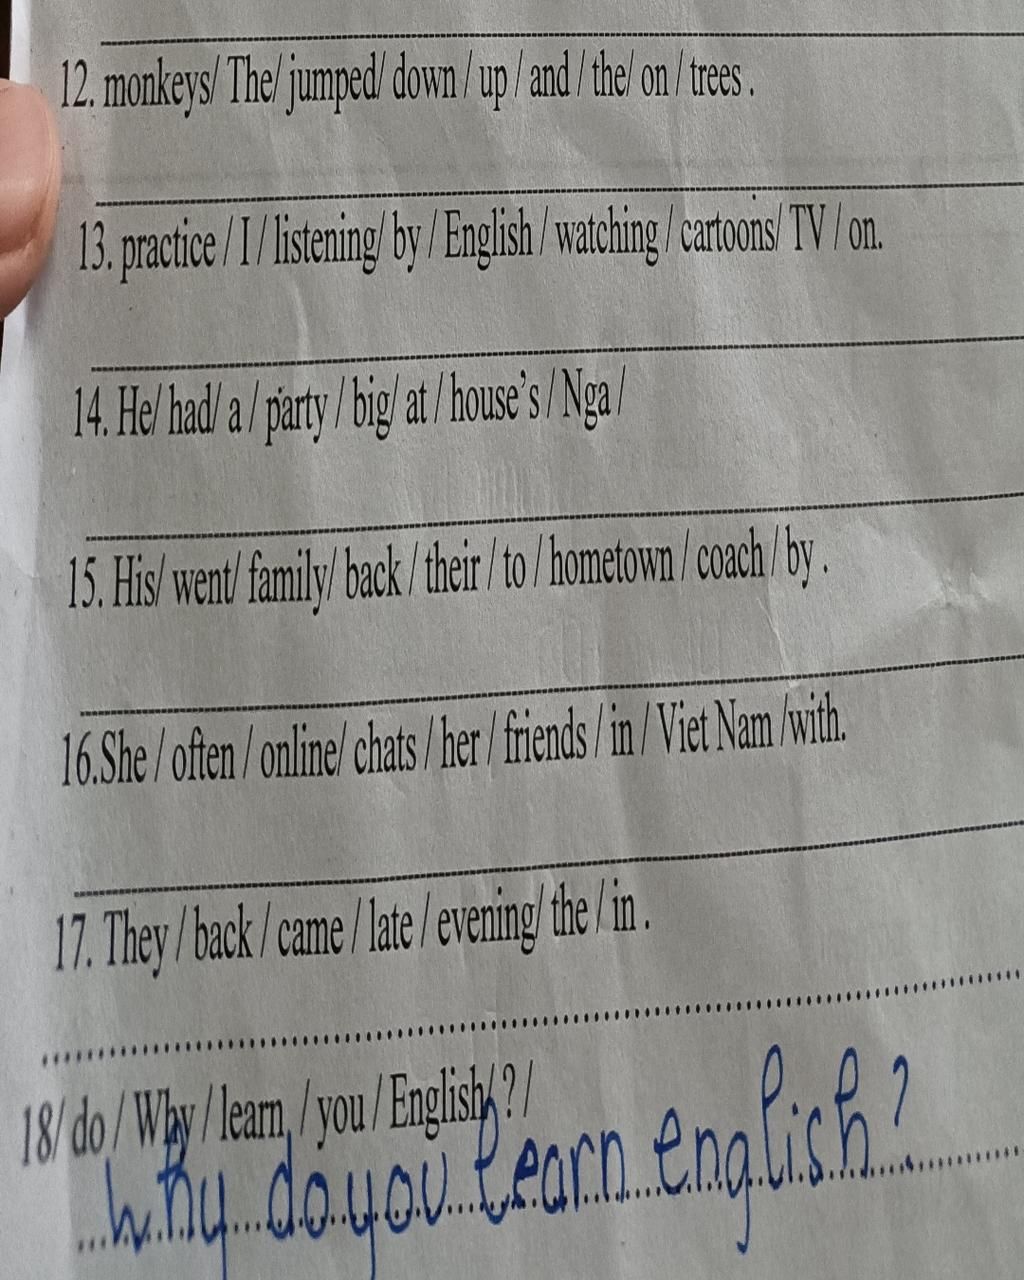 12. monkeys/ The/ jumped/ down / up / and / the/ on / trees .
13. practice / I / listening/ by / English / watching / cartoons/ TV / on.
14. He/ had/ a / party / big/ at / house's / Nga /
15. His/ went/ family/ back / their / to / hometown / coach / by .
16.She / often / online/ chats / her / friends / in / Viet Nam /with.
17. They / back / came / late / evening/ the / in .
18/ do / Why / learn / you / English/ ? /
Why do you learn english?